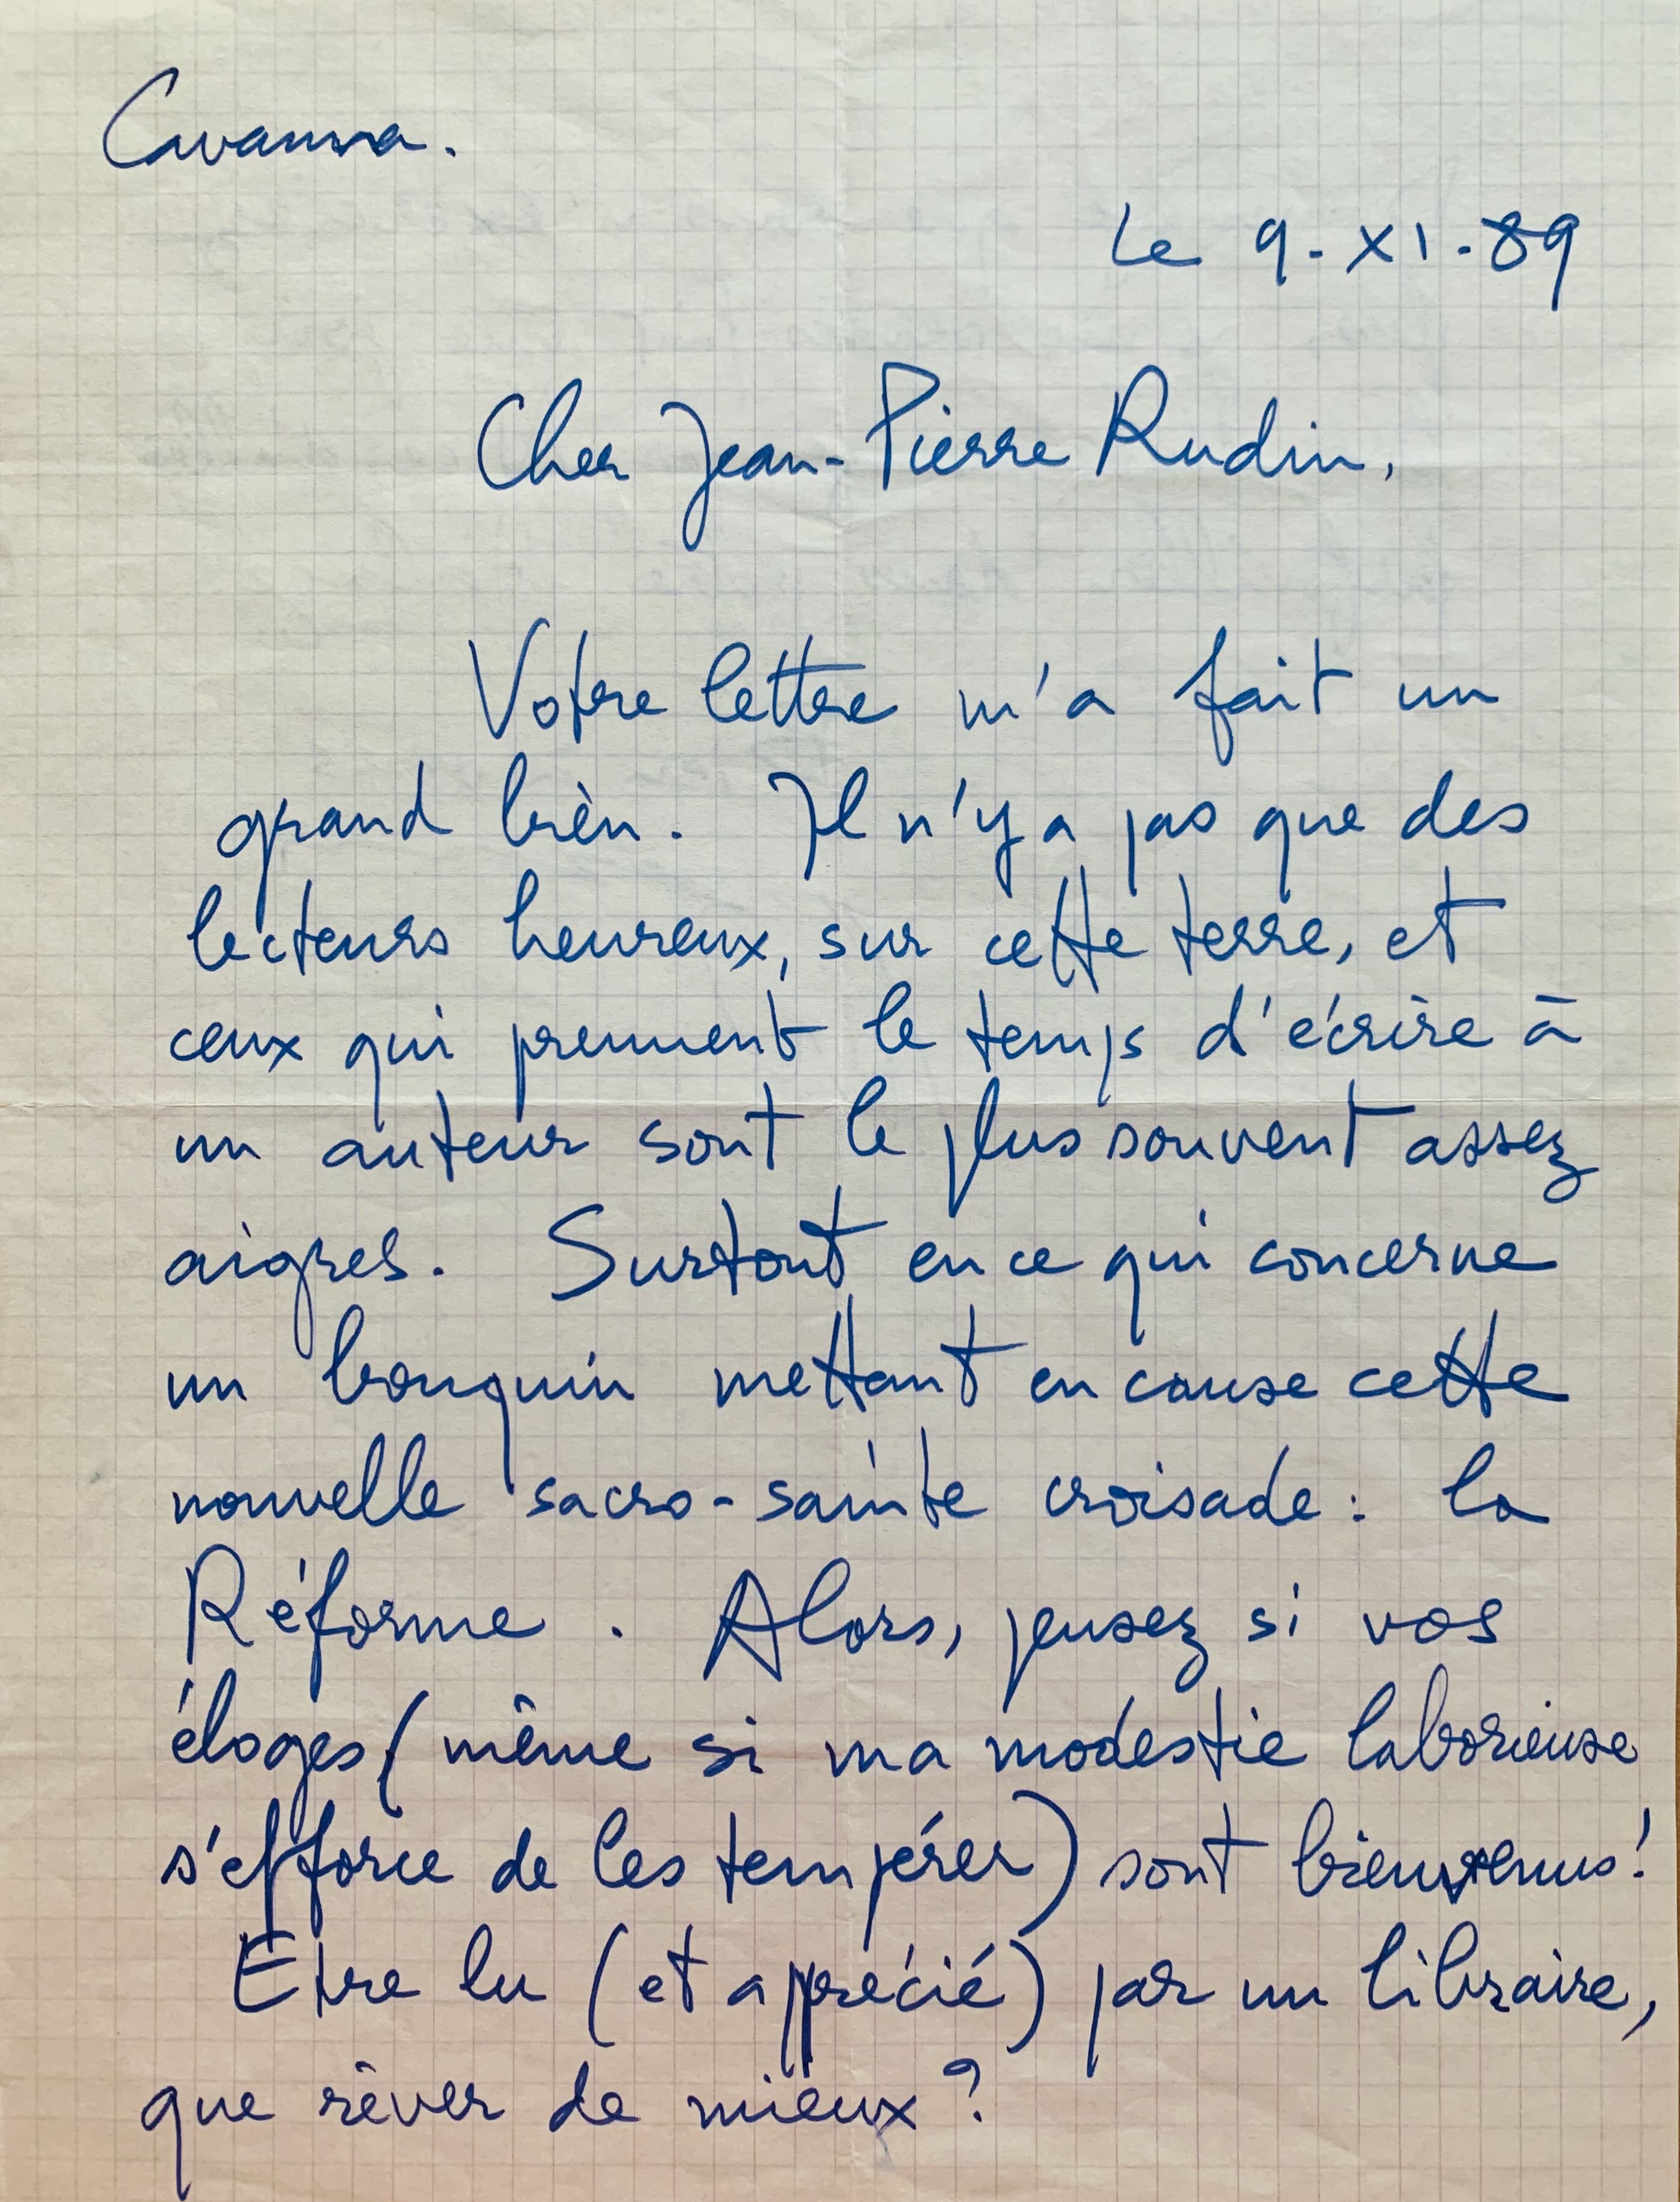 Cavanna.
Le 9-XI-89
Cher Jean-Pierre Rudin,
Votre lettre m'a fait un
grand bien. Il n'y a pas que des
lecteurs heureux, sur cette terre, et
ceux qui prennent le temps d'écrire à
un auteur sont le plus souvent assez
aigres. Surtout en ce qui concerne
un bouquin mettant en cause cette
nouvelle sacro-sainte croisade : la
Réforme. Alors, pensez si vos
éloges (même si ma modestie laborieuse
s'efforce de les tempérer) sont bienvenus !
Etre lu (et apprécié) par un libraire,
que rêver de mieux ?